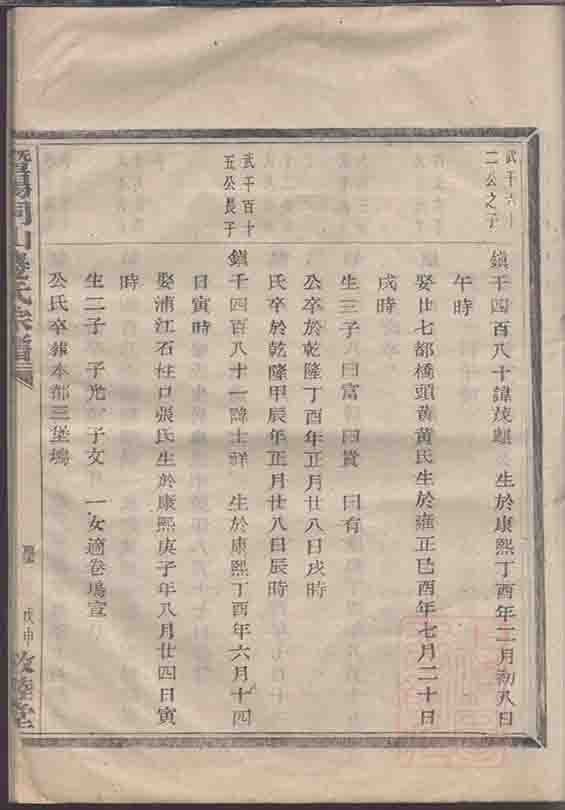 武千六十
二公之子
鎮千四百八十諱茂 生於康熙丁酉年二月初八日
午時
娶廿七都橋頭黃黃氏生於雍正己酉年七月二十日
戌時
生三子 曰富 曰貴 曰有
公卒於乾隆丁酉年正月廿八日戌時
氏卒於乾隆甲辰年正月廿八日辰時
武千百十
五公長子
鎮千四百八十一諱士祥 生於康熙丁酉年六月十四
日寅時
娶浦江石柱口張氏生於康熙庚子年八月廿四日寅
時
生二子 子光 子文 一女適卷塢宣
公氏卒葬本都三堡塢
暨陽 山 氏宗譜
戊申
敦睦堂